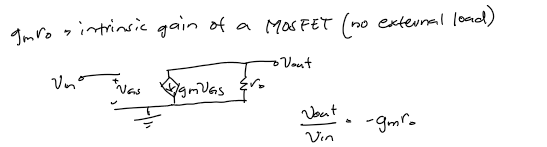 gmro → intrinsic gain of a MOSFET (no external load)
Vout
Vin + VGS - gmVGS ro
Vout/Vin = -gmro